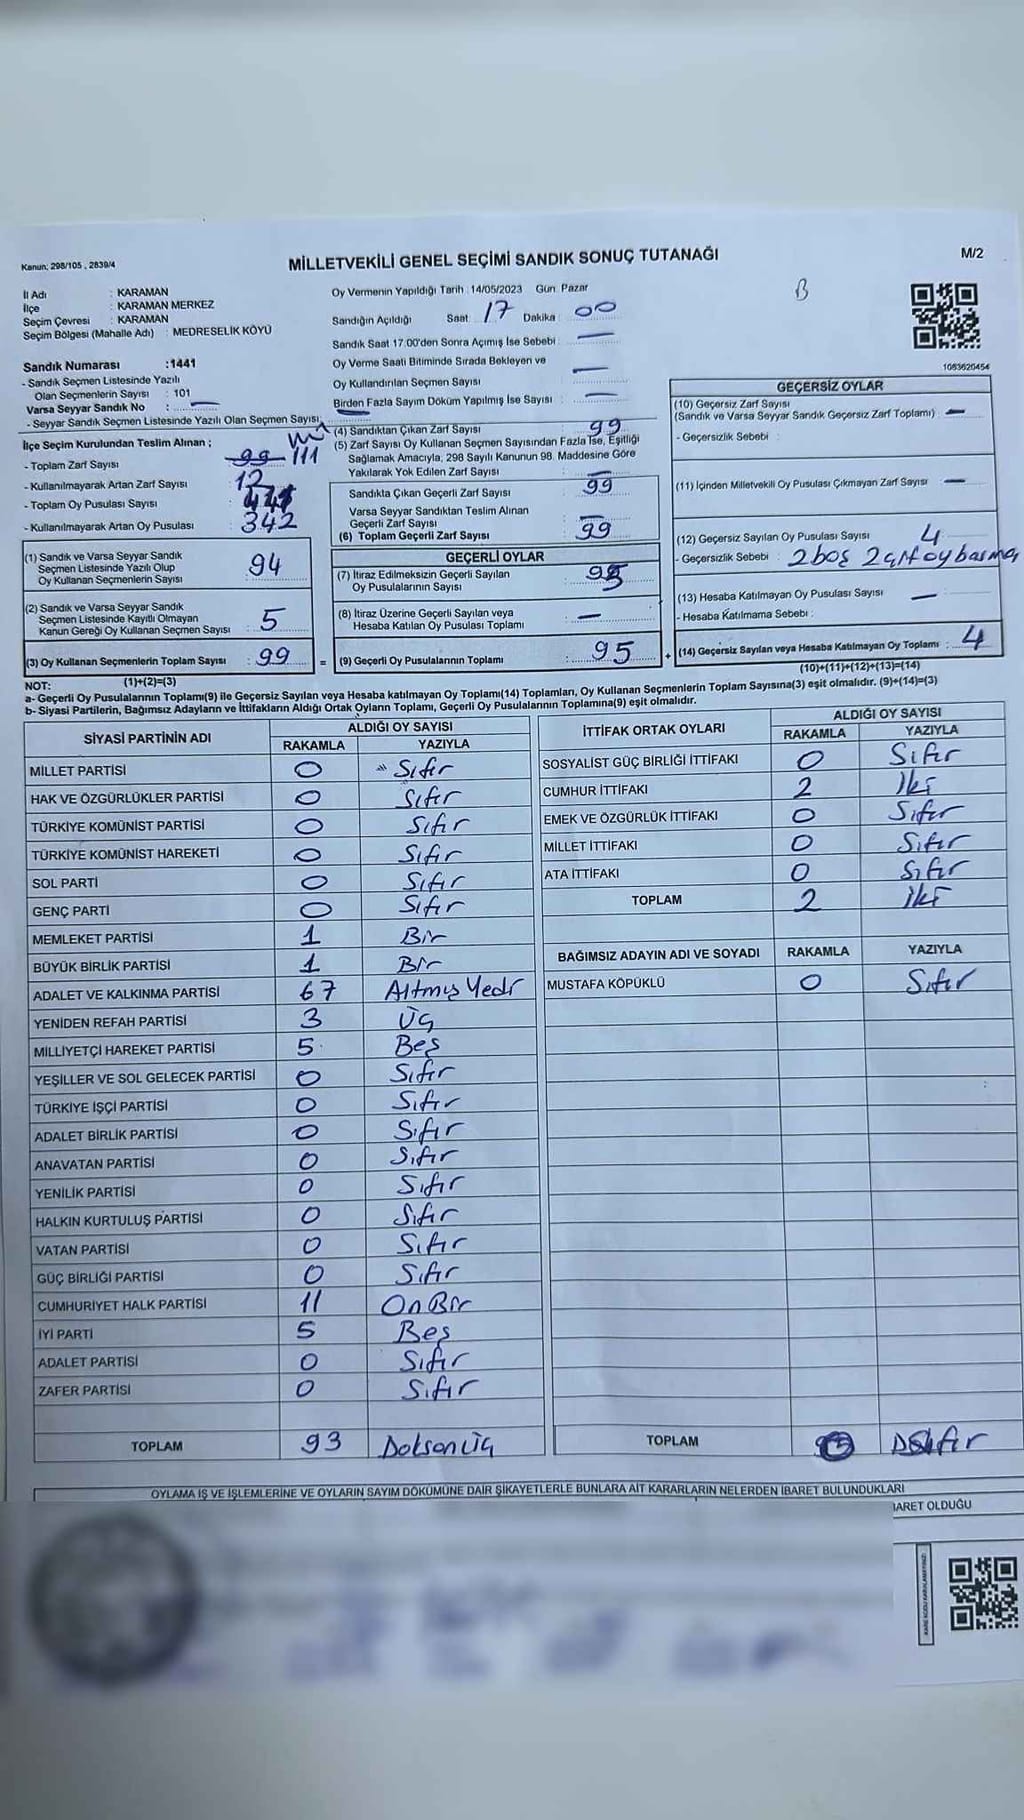 Kanun: 298/105 , 2839/4
MİLLETVEKİLİ GENEL SEÇİMİ SANDIK SONUÇ TUTANAĞI
M/2
İl Adı : KARAMAN
İlçe : KARAMAN MERKEZ
Seçim Çevresi : KARAMAN
Seçim Bölgesi (Mahalle Adı) : MEDRESELİK KÖYÜ
Sandık Numarası :1441
- Sandık Seçmen Listesinde Yazılı
Olan Seçmenlerin Sayısı : 101
Varsa Seyyar Sandık No : —
- Seyyar Sandık Seçmen Listesinde Yazılı Olan Seçmen Sayısı:
İlçe Seçim Kurulundan Teslim Alınan ;
- Toplam Zarf Sayısı : 99 111
- Kullanılmayarak Artan Zarf Sayısı : 12
- Toplam Oy Pusulası Sayısı :
- Kullanılmayarak Artan Oy Pusulası : 342
(1) Sandık ve Varsa Seyyar Sandık
Seçmen Listesinde Yazılı Olup
Oy Kullanan Seçmenlerin Sayısı : 94
(2) Sandık ve Varsa Seyyar Sandık
Seçmen Listesinde Kayıtlı Olmayan
Kanun Gereği Oy Kullanan Seçmen Sayısı : 5
(3) Oy Kullanan Seçmenlerin Toplam Sayısı : 99
(1)+(2)=(3)
Oy Vermenin Yapıldığı Tarih :14/05/2023 Gün: Pazar
Sandığın Açıldığı Saat : 17 Dakika : 00
Sandık Saat 17.00'den Sonra Açımış İse Sebebi : —
Oy Verme Saati Bitiminde Sırada Bekleyen ve
Oy Kullandırılan Seçmen Sayısı : —
Birden Fazla Sayım Döküm Yapılmış İse Sayısı : —
(4) Sandıktan Çıkan Zarf Sayısı : 99
(5) Zarf Sayısı Oy Kullanan Seçmen Sayısından Fazla İse, Eşitliği
Sağlamak Amacıyla, 298 Sayılı Kanunun 98. Maddesine Göre
Yakılarak Yok Edilen Zarf Sayısı : —
Sandıkta Çıkan Geçerli Zarf Sayısı : 99
Varsa Seyyar Sandıktan Teslim Alınan
Geçerli Zarf Sayısı : —
(6) Toplam Geçerli Zarf Sayısı : 99
GEÇERLİ OYLAR
(7) İtiraz Edilmeksizin Geçerli Sayılan
Oy Pusulalarının Sayısı : 95
(8) İtiraz Üzerine Geçerli Sayılan veya
Hesaba Katılan Oy Pusulası Toplamı : —
= (9) Geçerli Oy Pusulalarının Toplamı : 95
B
1063620454
GEÇERSİZ OYLAR
(10) Geçersiz Zarf Sayısı
(Sandık ve Varsa Seyyar Sandık Geçersiz Zarf Toplamı) : —
- Geçersizlik Sebebi :
(11) İçinden Milletvekili Oy Pusulası Çıkmayan Zarf Sayısı : —
(12) Geçersiz Sayılan Oy Pusulası Sayısı : 4
- Geçersizlik Sebebi : 2 boş 2 çift oy basma
(13) Hesaba Katılmayan Oy Pusulası Sayısı : —
- Hesaba Katılmama Sebebi :
+ (14) Geçersiz Sayılan veya Hesaba Katılmayan Oy Toplamı : 4
(10)+(11)+(12)+(13)=(14)
NOT:
a- Geçerli Oy Pusulalarının Toplamı(9) ile Geçersiz Sayılan veya Hesaba katılmayan Oy Toplamı(14) Toplamları, Oy Kullanan Seçmenlerin Toplam Sayısına(3) eşit olmalıdır. (9)+(14)=(3)
b- Siyasi Partilerin, Bağımsız Adayların ve İttifakların Aldığı Ortak Oyların Toplamı, Geçerli Oy Pusulalarının Toplamına(9) eşit olmalıdır.
SİYASİ PARTİNİN ADI ALDIĞI OY SAYISI
RAKAMLA YAZIYLA
MİLLET PARTİSİ 0 Sıfır
HAK VE ÖZGÜRLÜKLER PARTİSİ 0 Sıfır
TÜRKİYE KOMÜNİST PARTİSİ 0 Sıfır
TÜRKİYE KOMÜNİST HAREKETİ 0 Sıfır
SOL PARTİ 0 Sıfır
GENÇ PARTİ 0 Sıfır
MEMLEKET PARTİSİ 1 Bir
BÜYÜK BİRLİK PARTİSİ 1 Bir
ADALET VE KALKINMA PARTİSİ 67 Altmış Yedi
YENİDEN REFAH PARTİSİ 3 Üç
MİLLİYETÇİ HAREKET PARTİSİ 5 Beş
YEŞİLLER VE SOL GELECEK PARTİSİ 0 Sıfır
TÜRKİYE İŞÇİ PARTİSİ 0 Sıfır
ADALET BİRLİK PARTİSİ 0 Sıfır
ANAVATAN PARTİSİ 0 Sıfır
YENİLİK PARTİSİ 0 Sıfır
HALKIN KURTULUŞ PARTİSİ 0 Sıfır
VATAN PARTİSİ 0 Sıfır
GÜÇ BİRLİĞİ PARTİSİ 0 Sıfır
CUMHURİYET HALK PARTİSİ 11 On Bir
İYİ PARTİ 5 Beş
ADALET PARTİSİ 0 Sıfır
ZAFER PARTİSİ 0 Sıfır
TOPLAM 93 Doksan Üç
İTTİFAK ORTAK OYLARI ALDIĞI OY SAYISI
RAKAMLA YAZIYLA
SOSYALİST GÜÇ BİRLİĞİ İTTİFAKI 0 Sıfır
CUMHUR İTTİFAKI 2 İki
EMEK VE ÖZGÜRLÜK İTTİFAKI 0 Sıfır
MİLLET İTTİFAKI 0 Sıfır
ATA İTTİFAKI 0 Sıfır
TOPLAM 2 İki
BAĞIMSIZ ADAYIN ADI VE SOYADI RAKAMLA YAZIYLA
MUSTAFA KÖPÜKLÜ 0 Sıfır
TOPLAM Sıfır
OYLAMA İŞ VE İŞLEMLERİNE VE OYLARIN SAYIM DÖKÜMÜNE DAİR ŞİKAYETLERLE BUNLARA AİT KARARLARIN NELERDEN İBARET BULUNDUKLARI
İBARET OLDUĞU